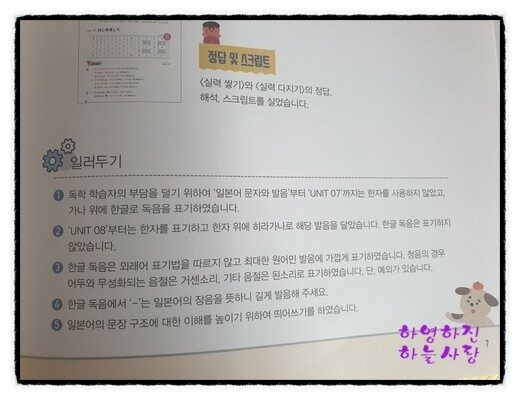 はじめまして
정답 및 스크립트
〈실력 쌓기〉와 〈실력 다지기〉의 정답,
해석, 스크립트를 실었습니다.
일러두기
1 독학 학습자의 부담을 덜기 위하여 '일본어 문자와 발음'부터 'UNIT 07'까지는 한자를 사용하지 않았고,
가나 위에 한글로 독음을 표기하였습니다.
2 'UNIT 08'부터는 한자를 표기하고 한자 위에 히라가나로 해당 발음을 달았습니다. 한글 독음은 표기하지
않았습니다.
3 한글 독음은 외래어 표기법을 따르지 않고 최대한 원어민 발음에 가깝게 표기하였습니다. 청음의 경우
어두와 무성화되는 음절은 거센소리, 기타 음절은 된소리로 표기했습니다. 단, 예외가 있습니다.
4 한글 독음에서 '-'는 일본어의 장음을 뜻하니 길게 발음해 주세요.
5 일본어의 문장 구조에 대한 이해를 높이기 위하여 띄어쓰기를 하였습니다.
하영하진
하늘사랑
7